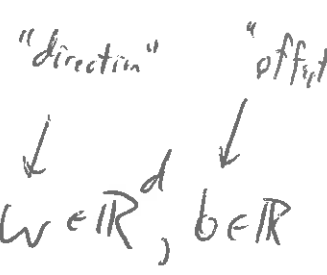 "direction" "offset
w ∈ ℝ^d, b ∈ ℝ